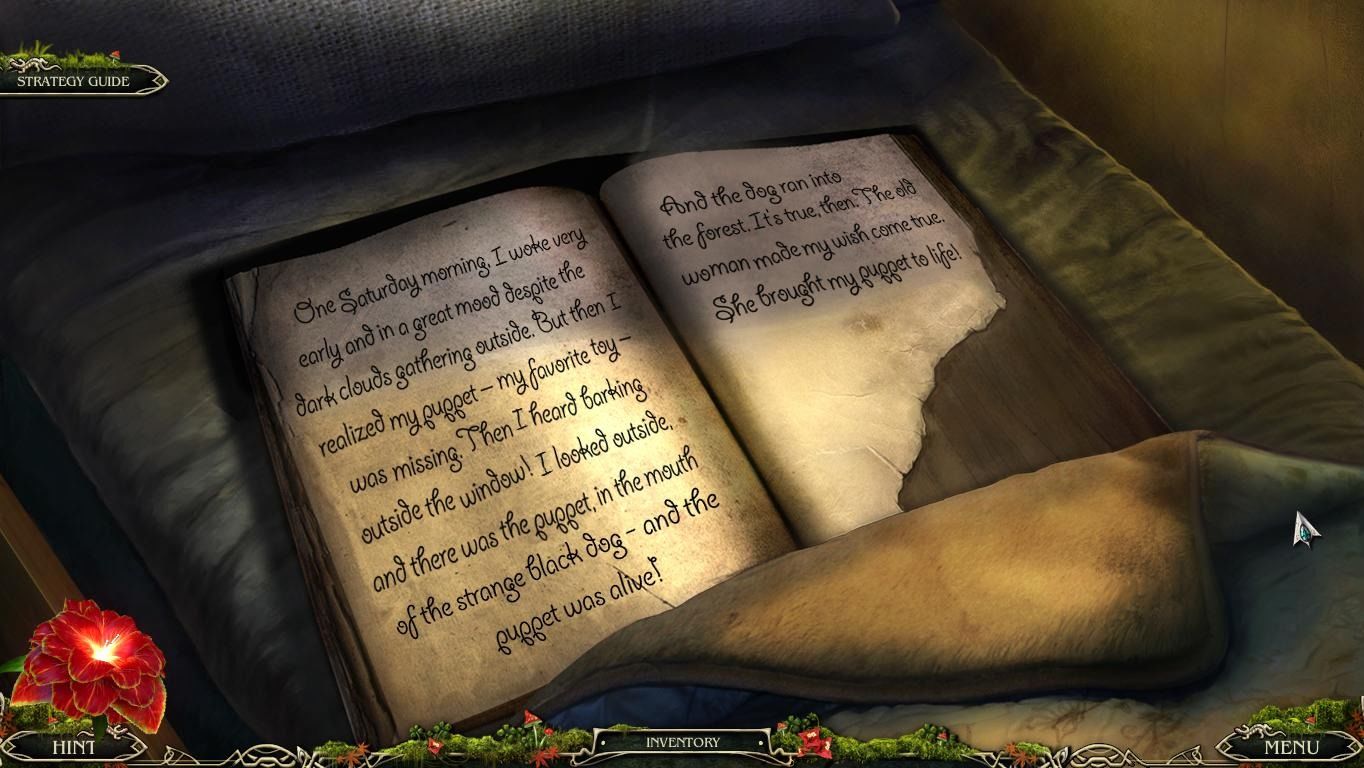 STRATEGY GUIDE
One Saturday morning, I woke very
early and in a great mood despite the
dark clouds gathering outside. But then I
realized my puppet – my favorite toy –
was missing. Then I heard barking
outside the window! I looked outside,
and there was the puppet, in the mouth
of the strange black dog – and the
puppet was alive!
And the dog ran into
the forest. It's true, then. The old
woman made my wish come true.
She brought my puppet to life!
HINT
INVENTORY
MENU